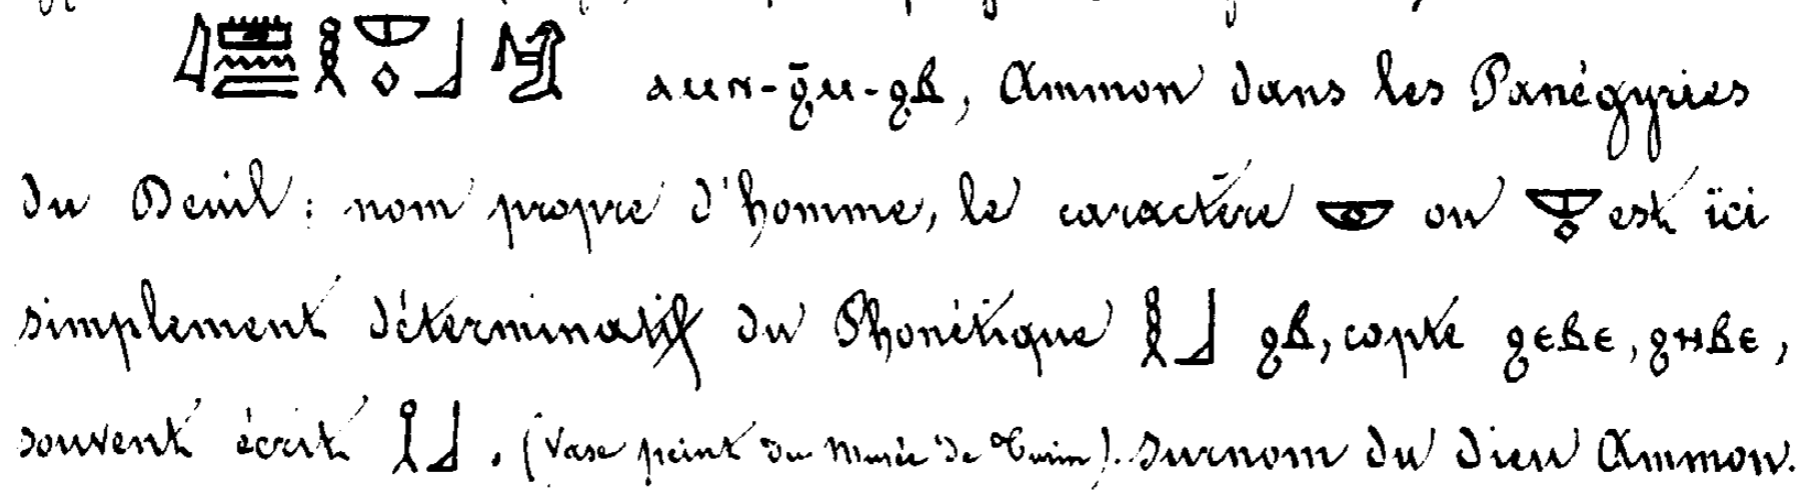 ⲁⲙⲛ-ϩ̄ⲙ-ϩⲃ, Ammon dans les Panégyries
du Deuil: nom propre d'homme, le caractère 𓎱 ou est ici
simplement déterminatif du Phonétique 𓎛𓃀 ϩⲃ, copte ϩⲉⲃⲉ, ϩⲏⲃⲉ,
souvent écrit 𓃀. (Vase peint du Musée de Turin). Surnom du dieu Ammon.